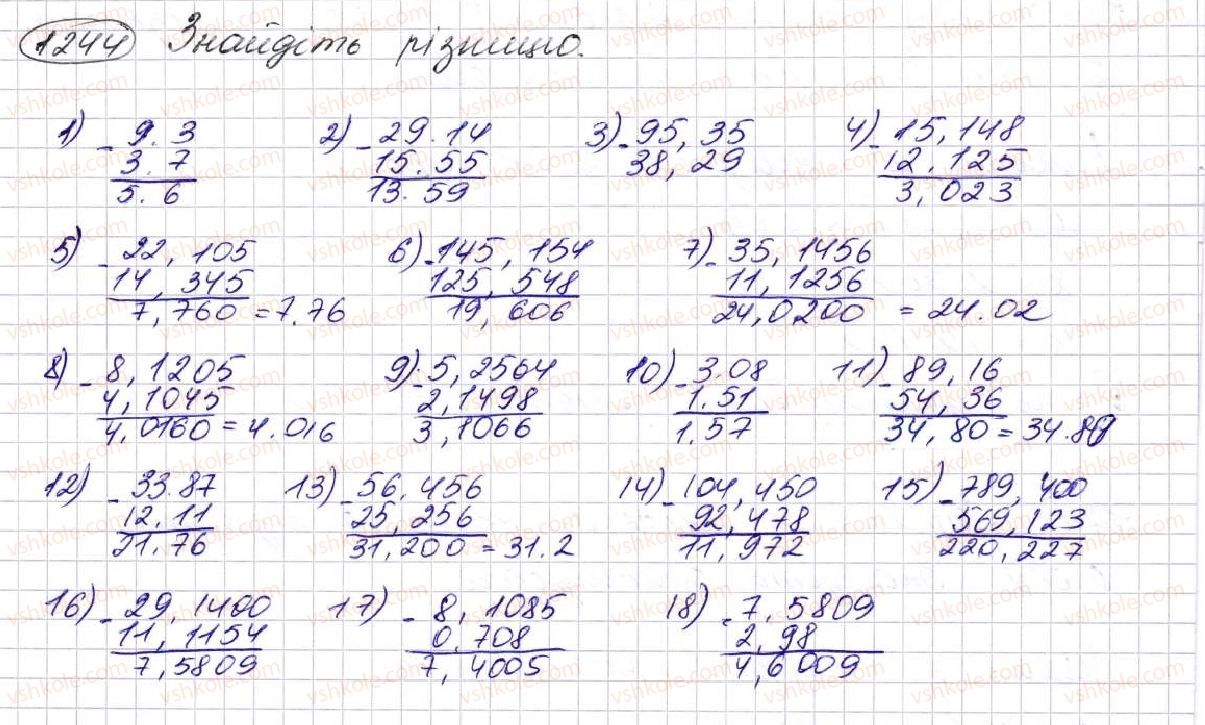 1244 Знайдіть різницю.
1) - 9.3 2) - 29.14 3) - 95,35 4) - 15,148
3.7 15.55 38,29 12,125
5.6 13.59 3,023
5) - 22,105 6) - 145,154 7) - 35,1456
14,345 125,548 11,1256
7,760 = 7.76 19,606 24,0200 = 24.02
8) - 8,1205 9) - 5,2564 10) - 3.08 11) - 89,16
4,1045 2,1498 1.51 54,36
4,0160 = 4.016 3,1066 1.57 34,80 = 34.8
12) - 33.87 13) - 56,456 14) - 104,450 15) - 789,400
12.11 25,256 92,478 569,123
21.76 31,200 = 31.2 11,972 220,227
16) - 29,1400 17) - 8,1085 18) - 7,5809
11,1154 0,708 2,98
7,5809 7,4005 4,6009